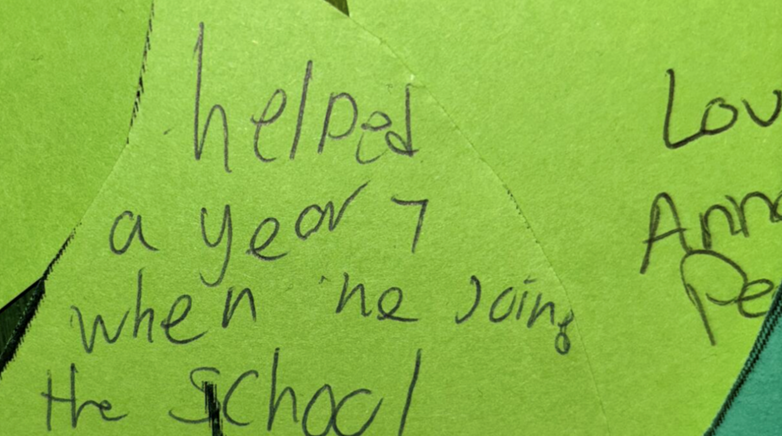 helped
a year 7
when he joing
the school
Lov
Anna
Pe